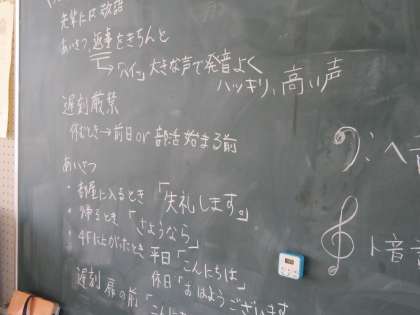 先輩には敬語
あいさつ、返事をきちんと
→「ハイ」大きな声で発音よく
ハッキリ、高い声
遅刻厳禁
休むとき→前日or部活始まる前
あいさつ
・部屋に入るとき「失礼します。」
・帰るとき「さようなら」
・4Fに上がったとき 平日「こんにちは」
休日「おはようございます
遅刻 扉の前「こんに
ヘ音
ト音